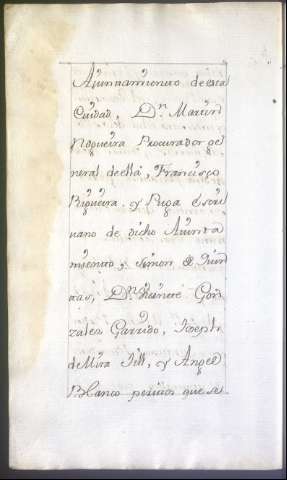 Ayuntamiento de esta
Ciudad, Dn. Martin
Nogueira Procurador ge
neral de ella, Francisco
Rigueira y Puga Escri
uano de dicho Ayunta
miento, Simon de Quin
tas, Dn. Gon
zales Garrido, Joseph
de Mira Till, y Angel
Blanco peritos que se